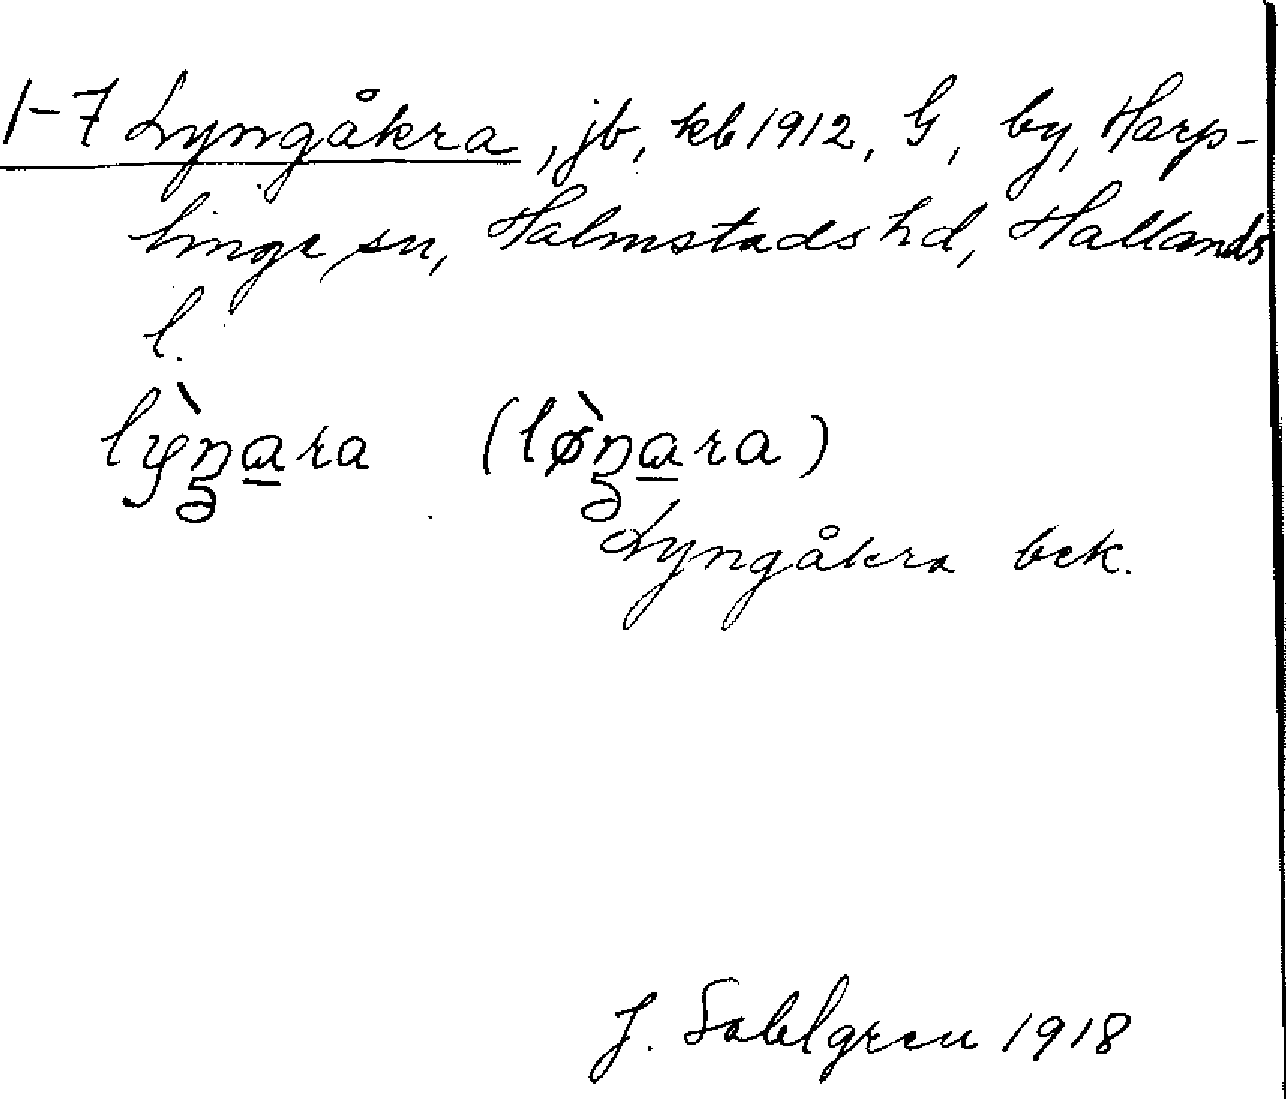 1-7 Lyngåkra, jb, kb 1912, G, by, Harp-
linge sn, Halmstads hd, Hallands
l.
lỳŋa̲ra (lø̀ŋa̲ra)
Lyngåkra bek.
J. Sahlgren 1918